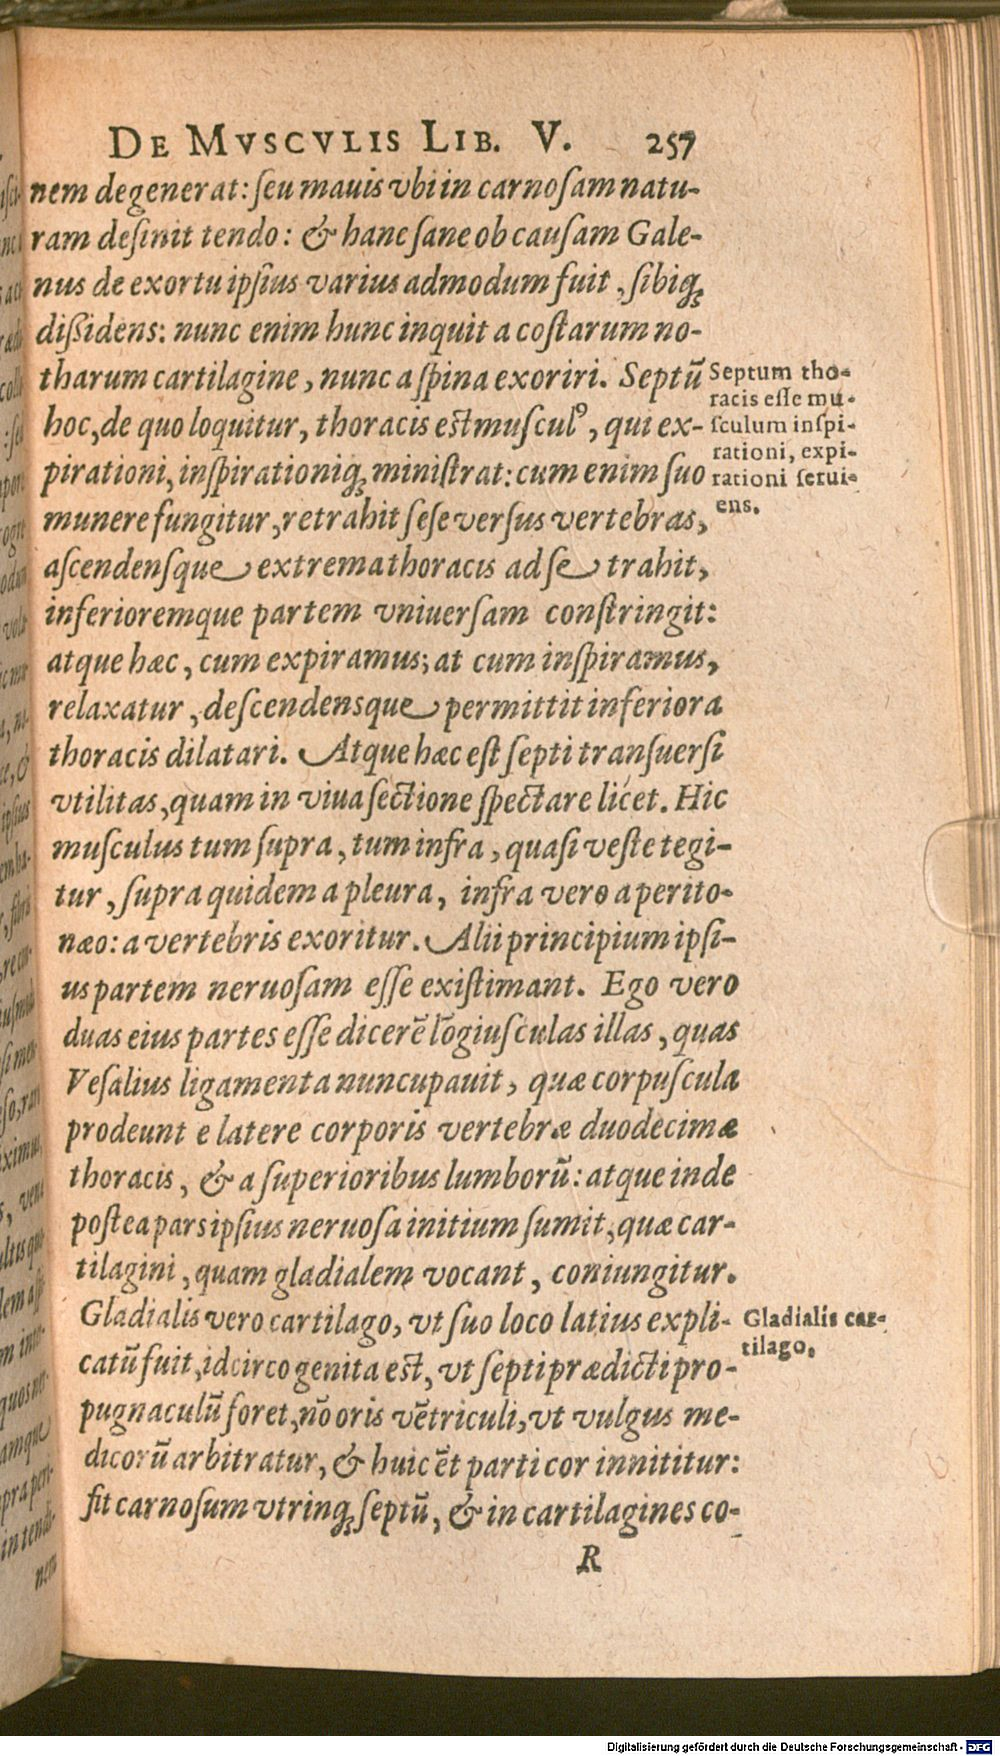 DE MVSCVLIS LIB. V. 257
nem degenerat: seu mauis vbi in carnosam natu-
ram desinit tendo: & hanc sane ob causam Gale-
nus de exortu ipsius varius admodum fuit, sibiq;
dißidens: nunc enim hunc inquit a costarum no-
tharum cartilagine, nunc a spina exoriri. Septũ
hoc, de quo loquitur, thoracis est muscul⁹, qui ex-
pirationi, inspirationiq; ministrat: cum enim suo
munere fungitur, retrahit sese versus vertebras,
ascendensque extrema thoracis ad se trahit,
inferioremque partem vniuersam constringit:
atque hæc, cum expiramus; at cum inspiramus,
relaxatur, descendensque permittit inferiora
thoracis dilatari. Atque hæc est septi transuersi
vtilitas, quam in viua sectione spectare licet. Hic
musculus tum supra, tum infra, quasi veste tegi-
tur, supra quidem a pleura, infra vero a perito-
næo: a vertebris exoritur. Alii principium ipsi-
us partem neruosam esse existimant. Ego vero
duas eius partes esse dicerẽ lõgiusculas illas, quas
Vesalius ligamenta nuncupauit, quæ corpuscula
prodeunt e latere corporis vertebræ duodecimæ
thoracis, & a superioribus lumborũ: atque inde
postea pars ipsius neruosa initium sumit, quæ car-
tilagini, quam gladialem vocant, coniungitur.
Gladialis vero cartilago, vt suo loco latius expli-
catũ fuit, idcirco genita est, vt septi prædicti pro-
pugnaculũ foret, nõ oris vẽtriculi, vt vulgus me-
dicorũ arbitratur, & huic ẽt parti cor innititur:
fit carnosum vtrinq; septũ, & in cartilagines co-
R
Septum tho-
racis esse mu-
sculum inspi-
rationi, expi-
rationi serui-
ens.
Gladialis car-
tilago.
Digitalisierung gefördert durch die Deutsche Forschungsgemeinschaft - DFG